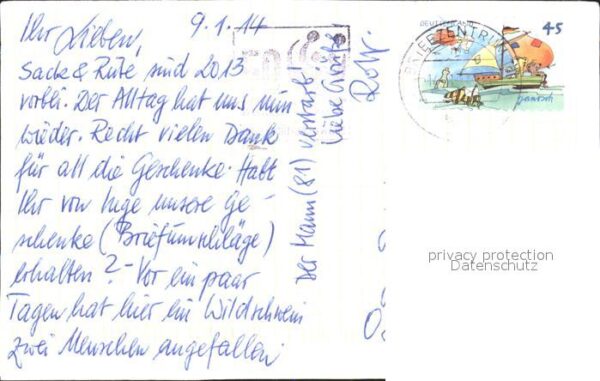 9.1.14
Ihr Lieben,
Sack & Rute sind 2013
vorbei. Der Alltag hat uns nun
wieder. Recht vielen Dank
für all die Geschenke. Habt
Ihr von Inge unsere Ge-
schenke (Briefumschläge)
erhalten? - Vor ein paar
Tagen hat hier ein Wildschwein
zwei Menschen angefallen
Der Mann (81) verstarb!
Liebe Grüße
DEUTSCHLAND
45
BRIEFZENTRUM
privacy protection
Datenschutz